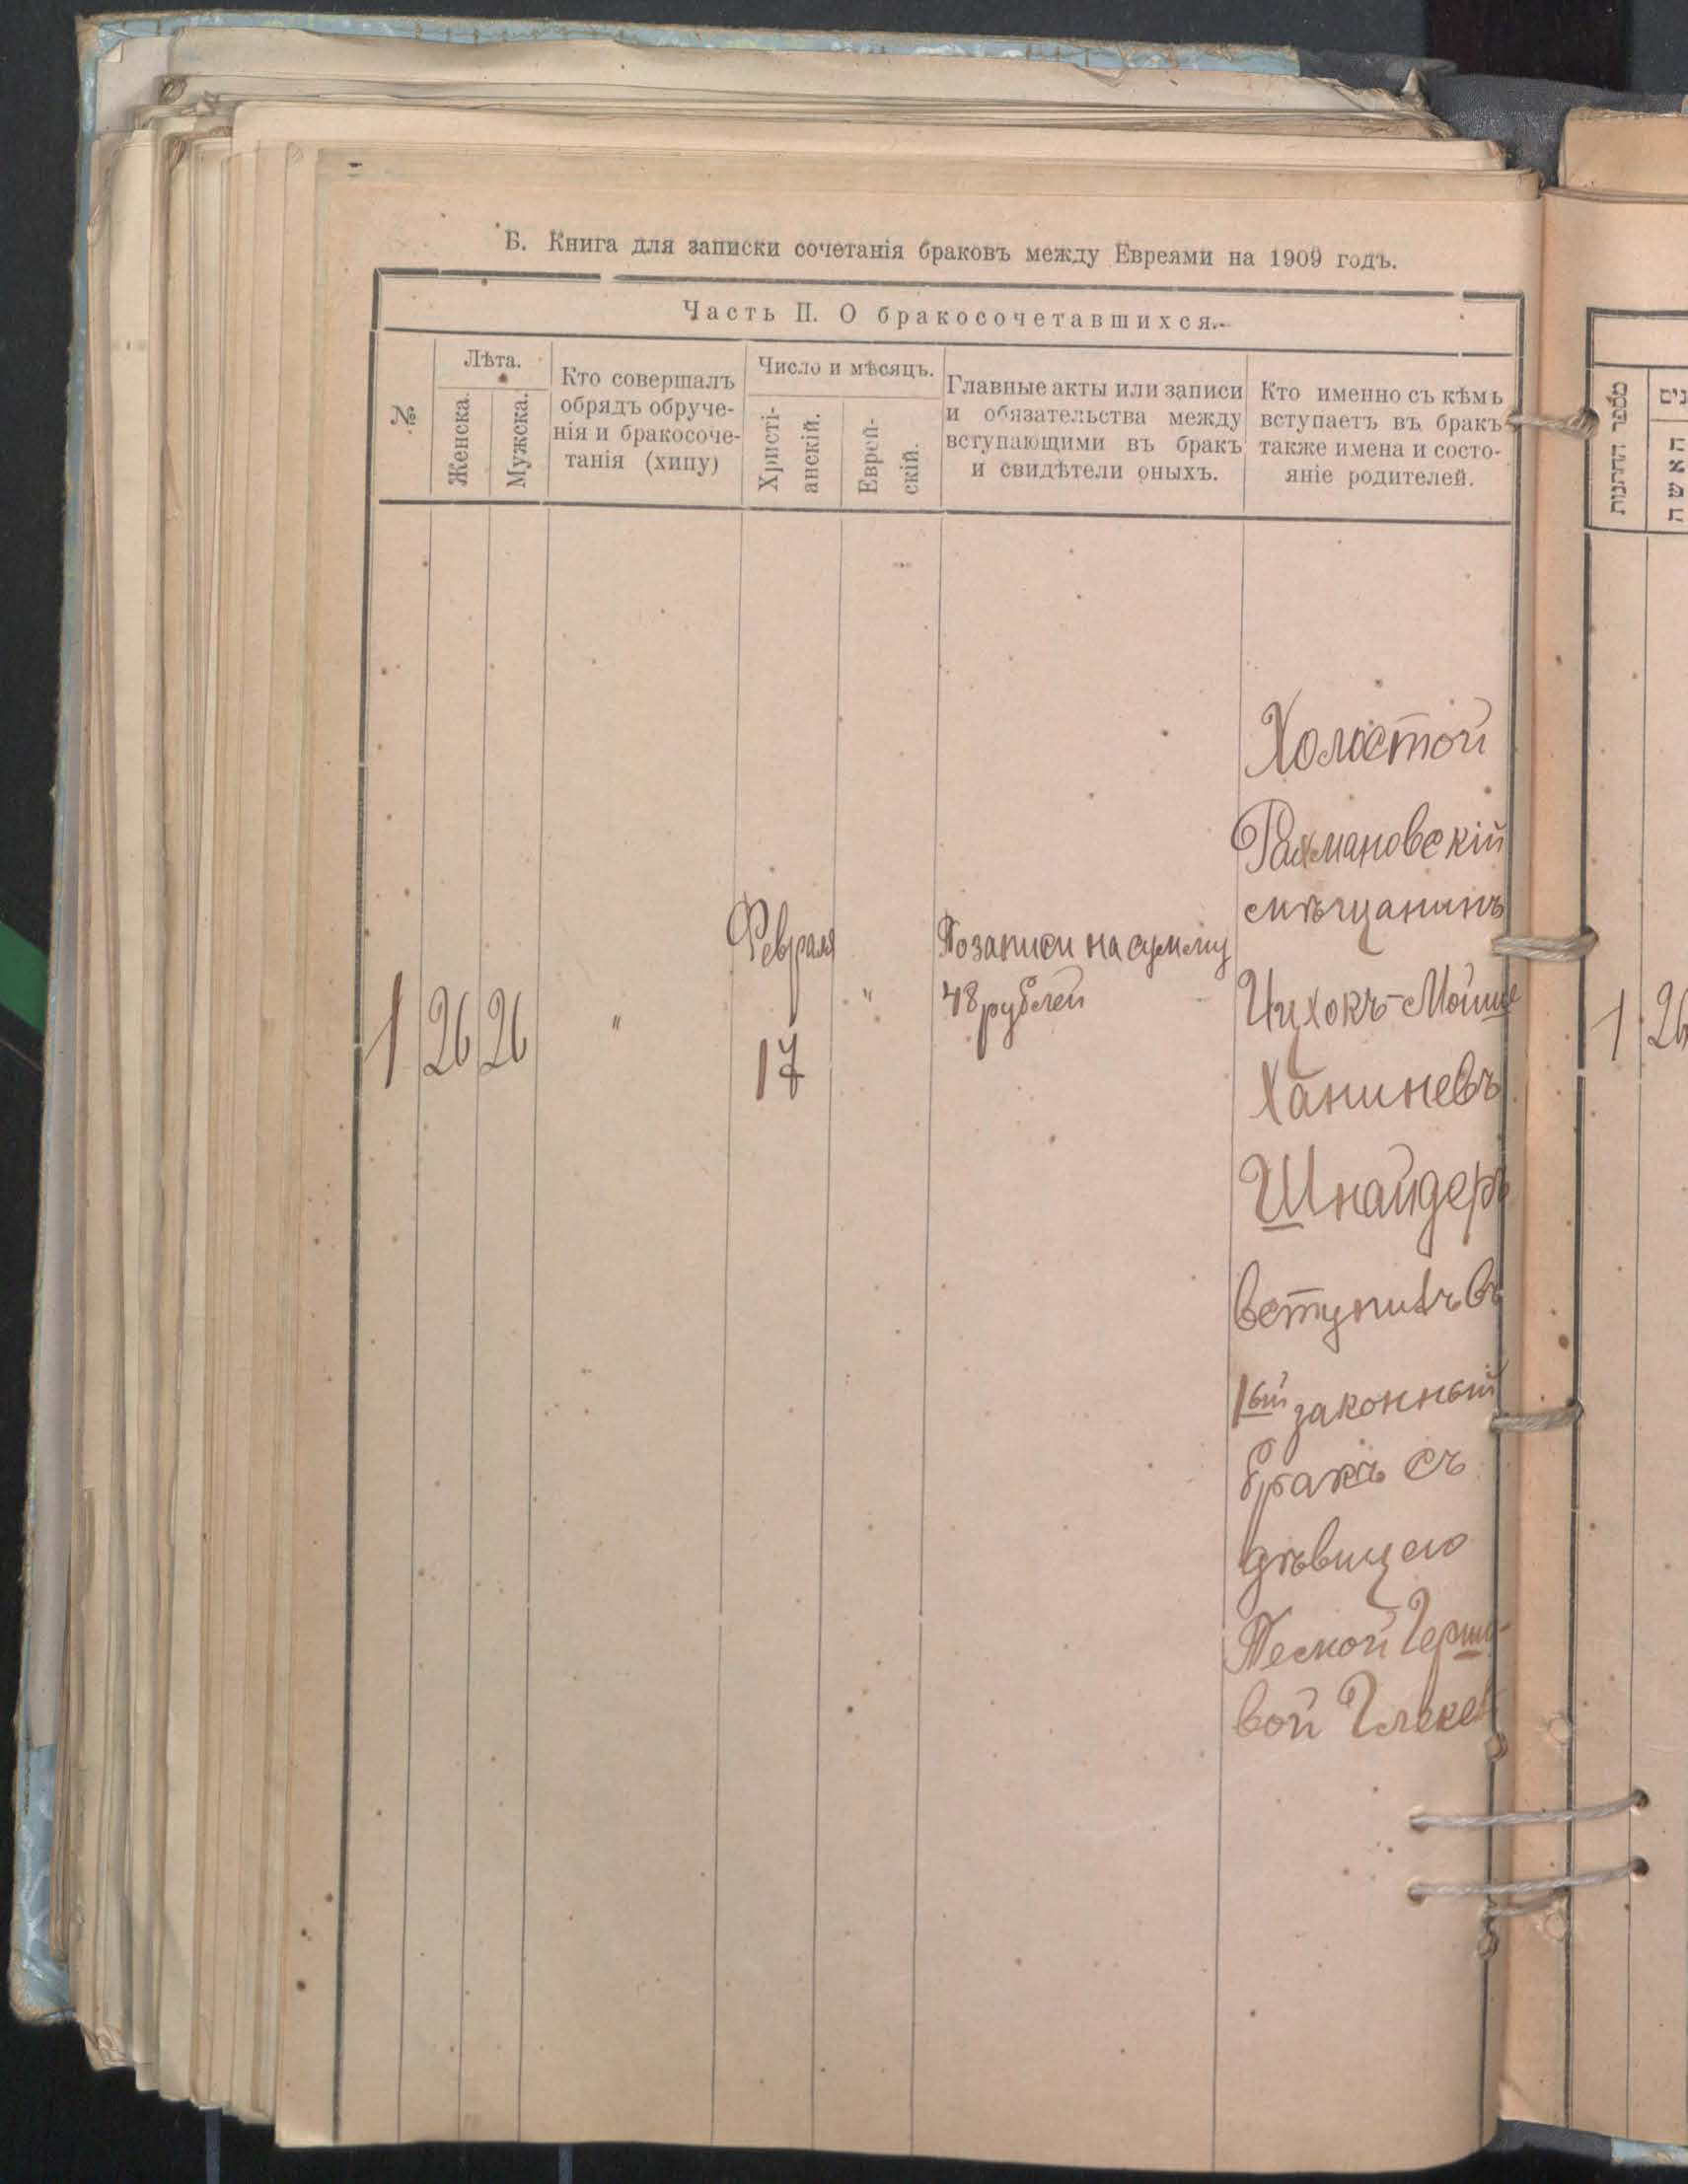 Б. Книга для записки сочетанія браковъ между Евреями на 1909 годъ.
Часть II. О бракосочетавшихся.
№
Лѣта.
Женска.
Мужска.
Кто совершалъ
обрядъ обруче-
нія и бракосоче-
танія (хипу)
Число и мѣсяцъ.
Христі-
анскій.
Еврей-
скій.
Главные акты или записи
и обязательства между
вступающими въ бракъ
и свидѣтели оныхъ.
Кто именно съ кѣмъ
вступаетъ въ бракъ
также имена и состо-
яніе родителей.
1
26
26
"
Февраля
17
"
По записи на сумму
48 рублей
Холостой
Рахмановскій
мѣщанинъ
Ицхокъ-Мойше
Ханиневъ
Шнайдеръ
вступилъ въ
1ый законный
бракъ съ
дѣвицею
Песной Герш-
вой
מספר החתונות
האשה
1
26